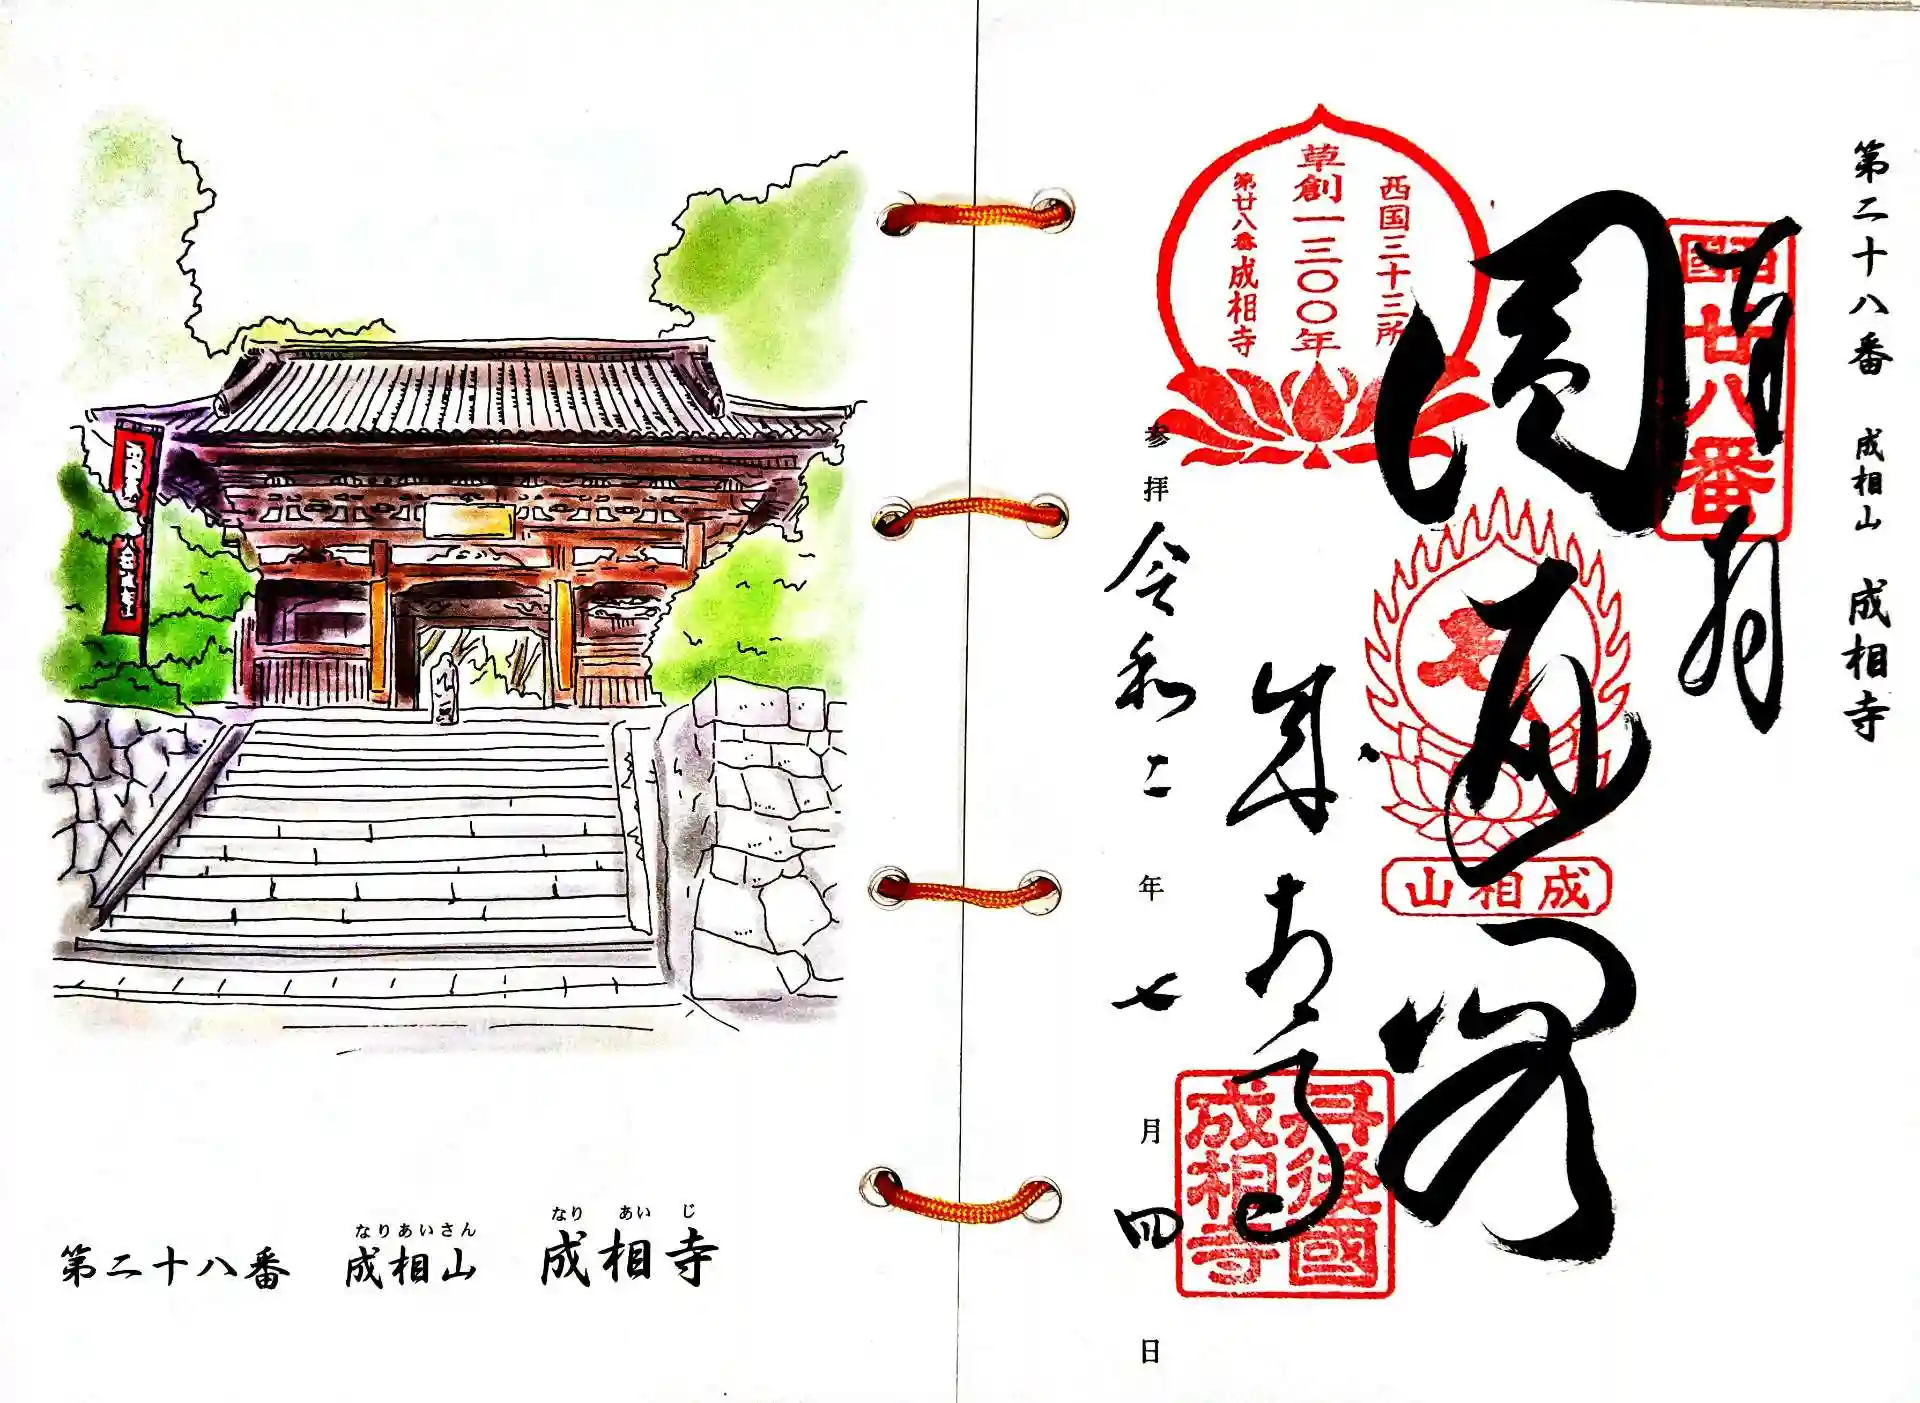 第二十八番 成相山 成相寺
西國
廿八番
奉拝
圓通閣
成相山
西国三十三所
草創一三〇〇年
第廿八番成相寺
成相寺
丹後國
成相寺
参拝 令和二年 七月 四日
なりあいさん なりあいじ
第二十八番 成相山 成相寺